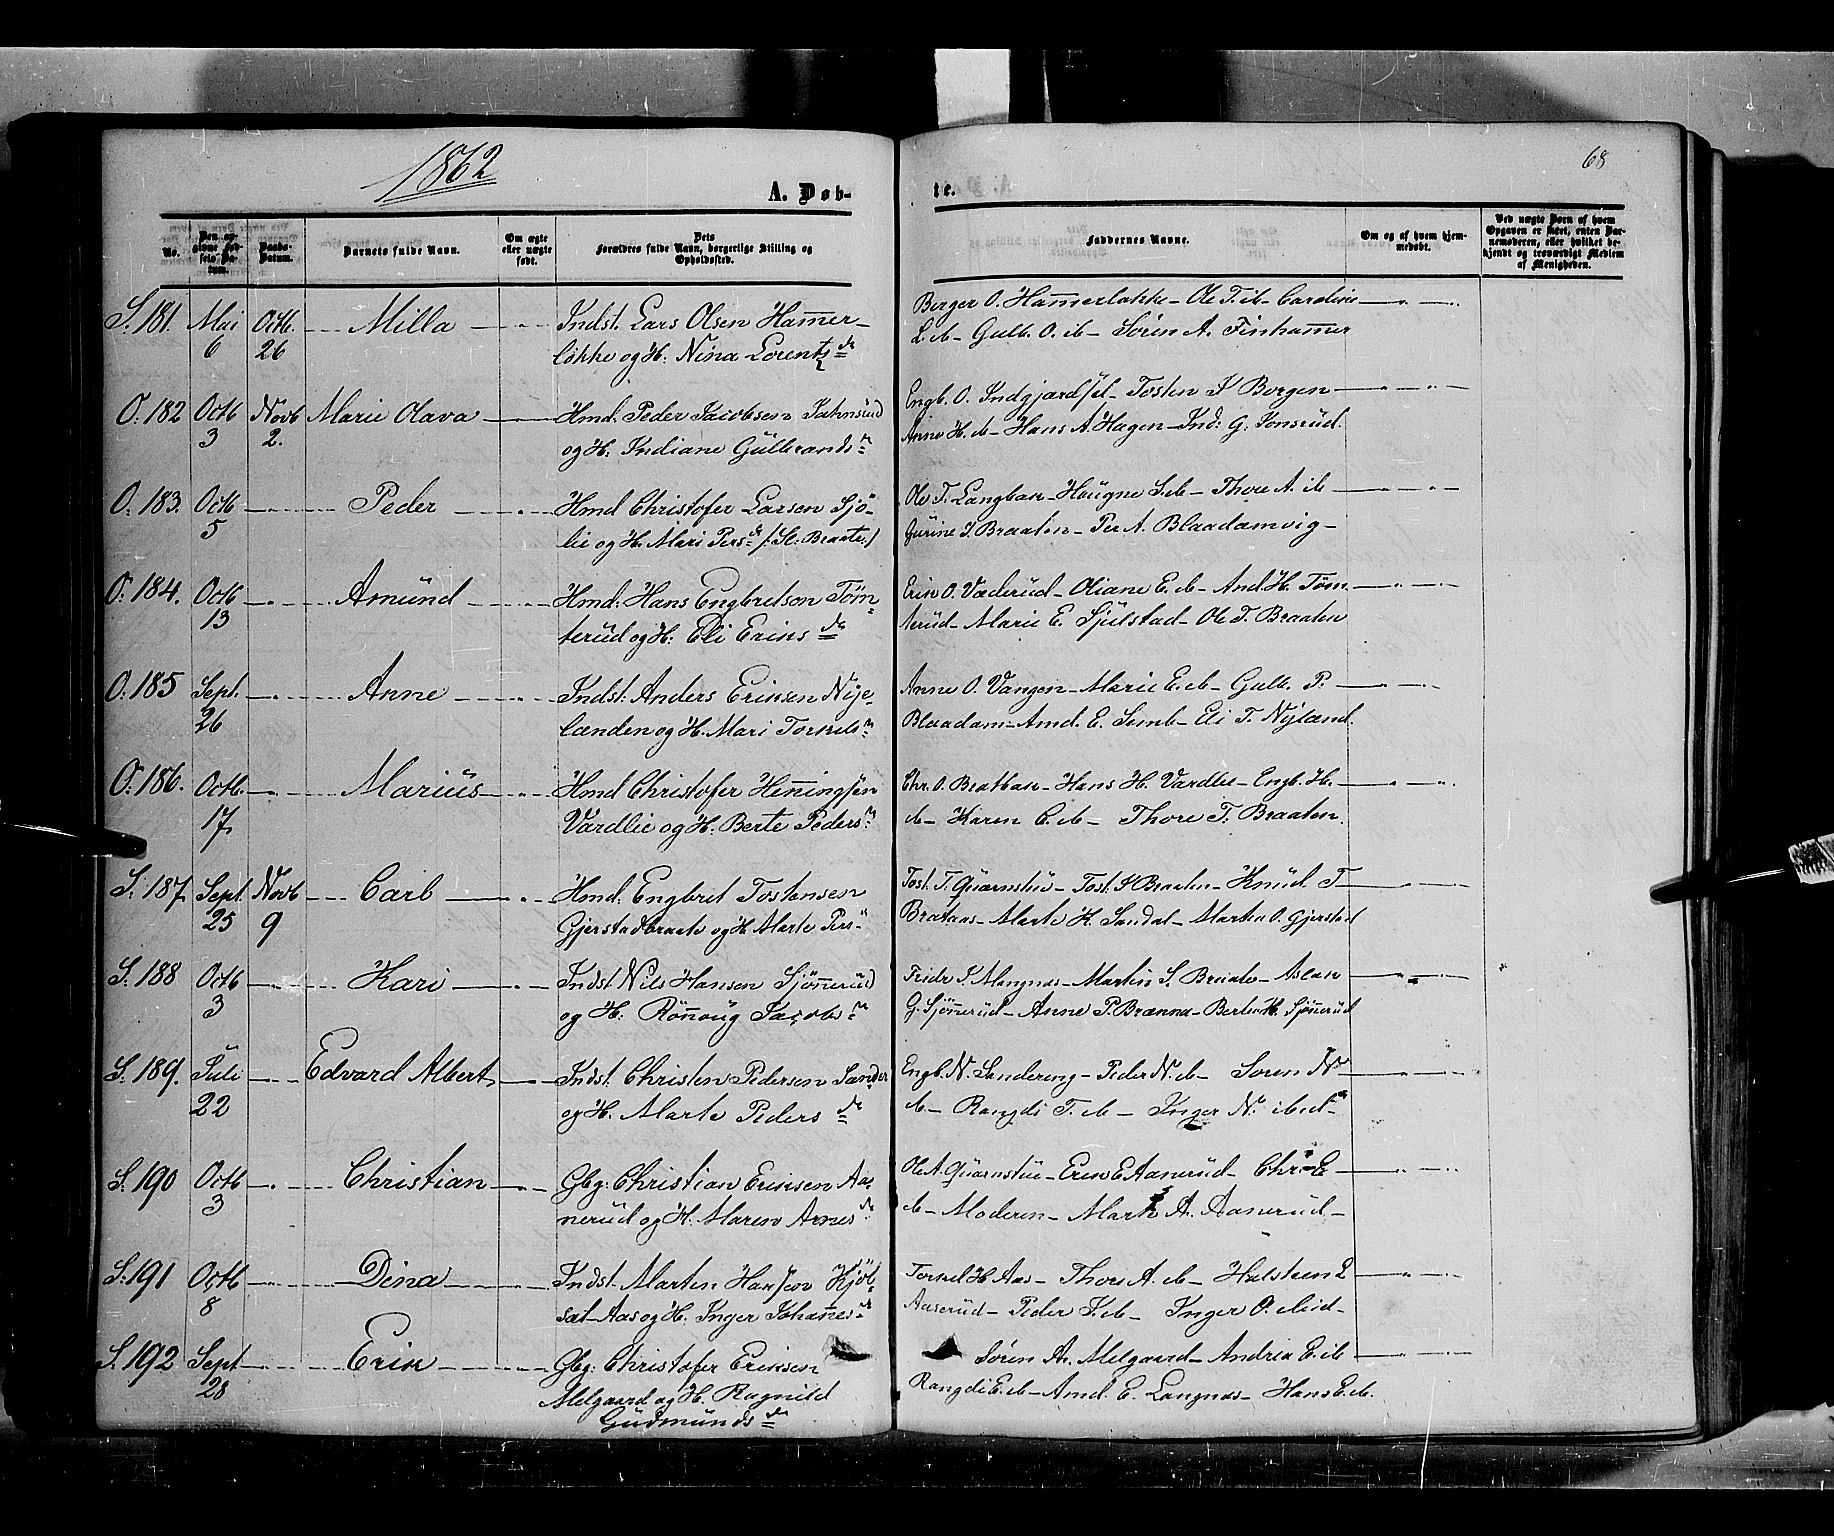 1862
68
A. Døb-
te.
No.
Den op-
givne Fød-
sels Da-
tum.
Daabs-
Datum.
Barnets fulde Navn.
Om ægte
eller uægte
født.
Dets
Forældres fulde Navn, borgerlige Stilling og
Opholdssted.
Faddernes Navne.
Om og af hvem hjem-
medøbt.
Ved uægte Børn af hvem
Opgaven er skeet, enten Bar-
nemoderen, eller hvilket be-
kjendt og troværdigt Medlem
af Menigheden.
S. 181. Mai 6 Octb. 26 Milla
Indst. Lars Olsen Hamer-
løkke og H: Nina Lorentsdr
Borger O. Hamerløkke - Ole T. ib - Caroline
L. ib - Gulb. O. ib - Sören A. Finhamer
O. 182 Octb 3 Novb 2. Marie Olava
Hmd. Peder Jacobsen
og H. Indiane Gulbrandsdr
Engb. O. - Tosten Borgen
Anne H. ib - Hans A. Hagen - Ind: G.
O. 183. Octb 5 Peder
Hmd Christofer Larsen Sjø-
lie og H. Mari Persdr /: Sl: Braate :/
Ole T. - Haugne S. ib - Thore A. ib
Gurine Braaten - Per A. Blaadamvig -
O. 184. Octb 13 Amund
Hmd: Hans Engbretsen Tøm-
terud og H: Eli Eriksdr
Erik O. Væderud - Oliane E. ib - And. H. Tøm-
terud - Marie E. Sjulstad - Ole T. Braaten
O. 185 Sept. 26 Anne
Indst. Anders Eriksen Nye-
lænden og H. Mari Torkelsdr
Anne O. Vangen - Marie E. ib - Gulb. P.
Blaadam - Amd. E. Semb - Eli T. Nyland.
O. 186. Octb. 17. Marius
Hmd Christofer Heningsen
Vardlie og H. Berte Pedersdr
Chr. O. - Hans H. Vardlie - Engb. H.
ib - Karen C. ib - Thore T. Braaten.
S. 187 Sept 25 Novb 9 Carl
Hmd. Engbret Tostensen
Gjerstadbraate og H Marte Persdr
Tost. T. Quarnstue - Tost. Braaten - Knud T
Brataas - Marte H. Sandal - Marten O. Gjerstad
S. 188 Octb 3 Kari
Indst Nils Hansen Sjønerud
og H. Rönoug Jacobsdr
Fredr - Martin S. Braate - Aslak
G. Sjønerud - Anne P. Brænna - Berte H. Sjønerud
S. 189. Juli 22 Edvard Albert
Indst. Christen Pedersen
og H. Marte Pedersdr
Engb. N. Sandereng - Peder N. ib - Soren N
ib - Rangdi T. ib - Inger N. ibid -
S. 190 Octb 3 Christian
Gbg: Christian Eriksen Aa-
nerud og H. Maren Arnesdr
Ole A. Quarnstue - Erik E Aanerud - Chr. E
ib - Moderen - A. Aanerud -
S. 191 Octb 8 Dina
Indst. Martin Hansen Kjøl-
sæt - Aas og H. Inger Johanesdr
Torkel H Aas - Thore A. ib - Halsteen E
Aaserud - Peder K. ib - Inger O. ibid -
S. 192 Sept 28 Erik
Gbg: Christofer Eriksen
Melgaard og H. Ragnild
Gudmundsdr
Søren An. Melgaard - Andrea E. ib
Rangdi E. ib - Amd. E. Langnæs - Hans E. ib.